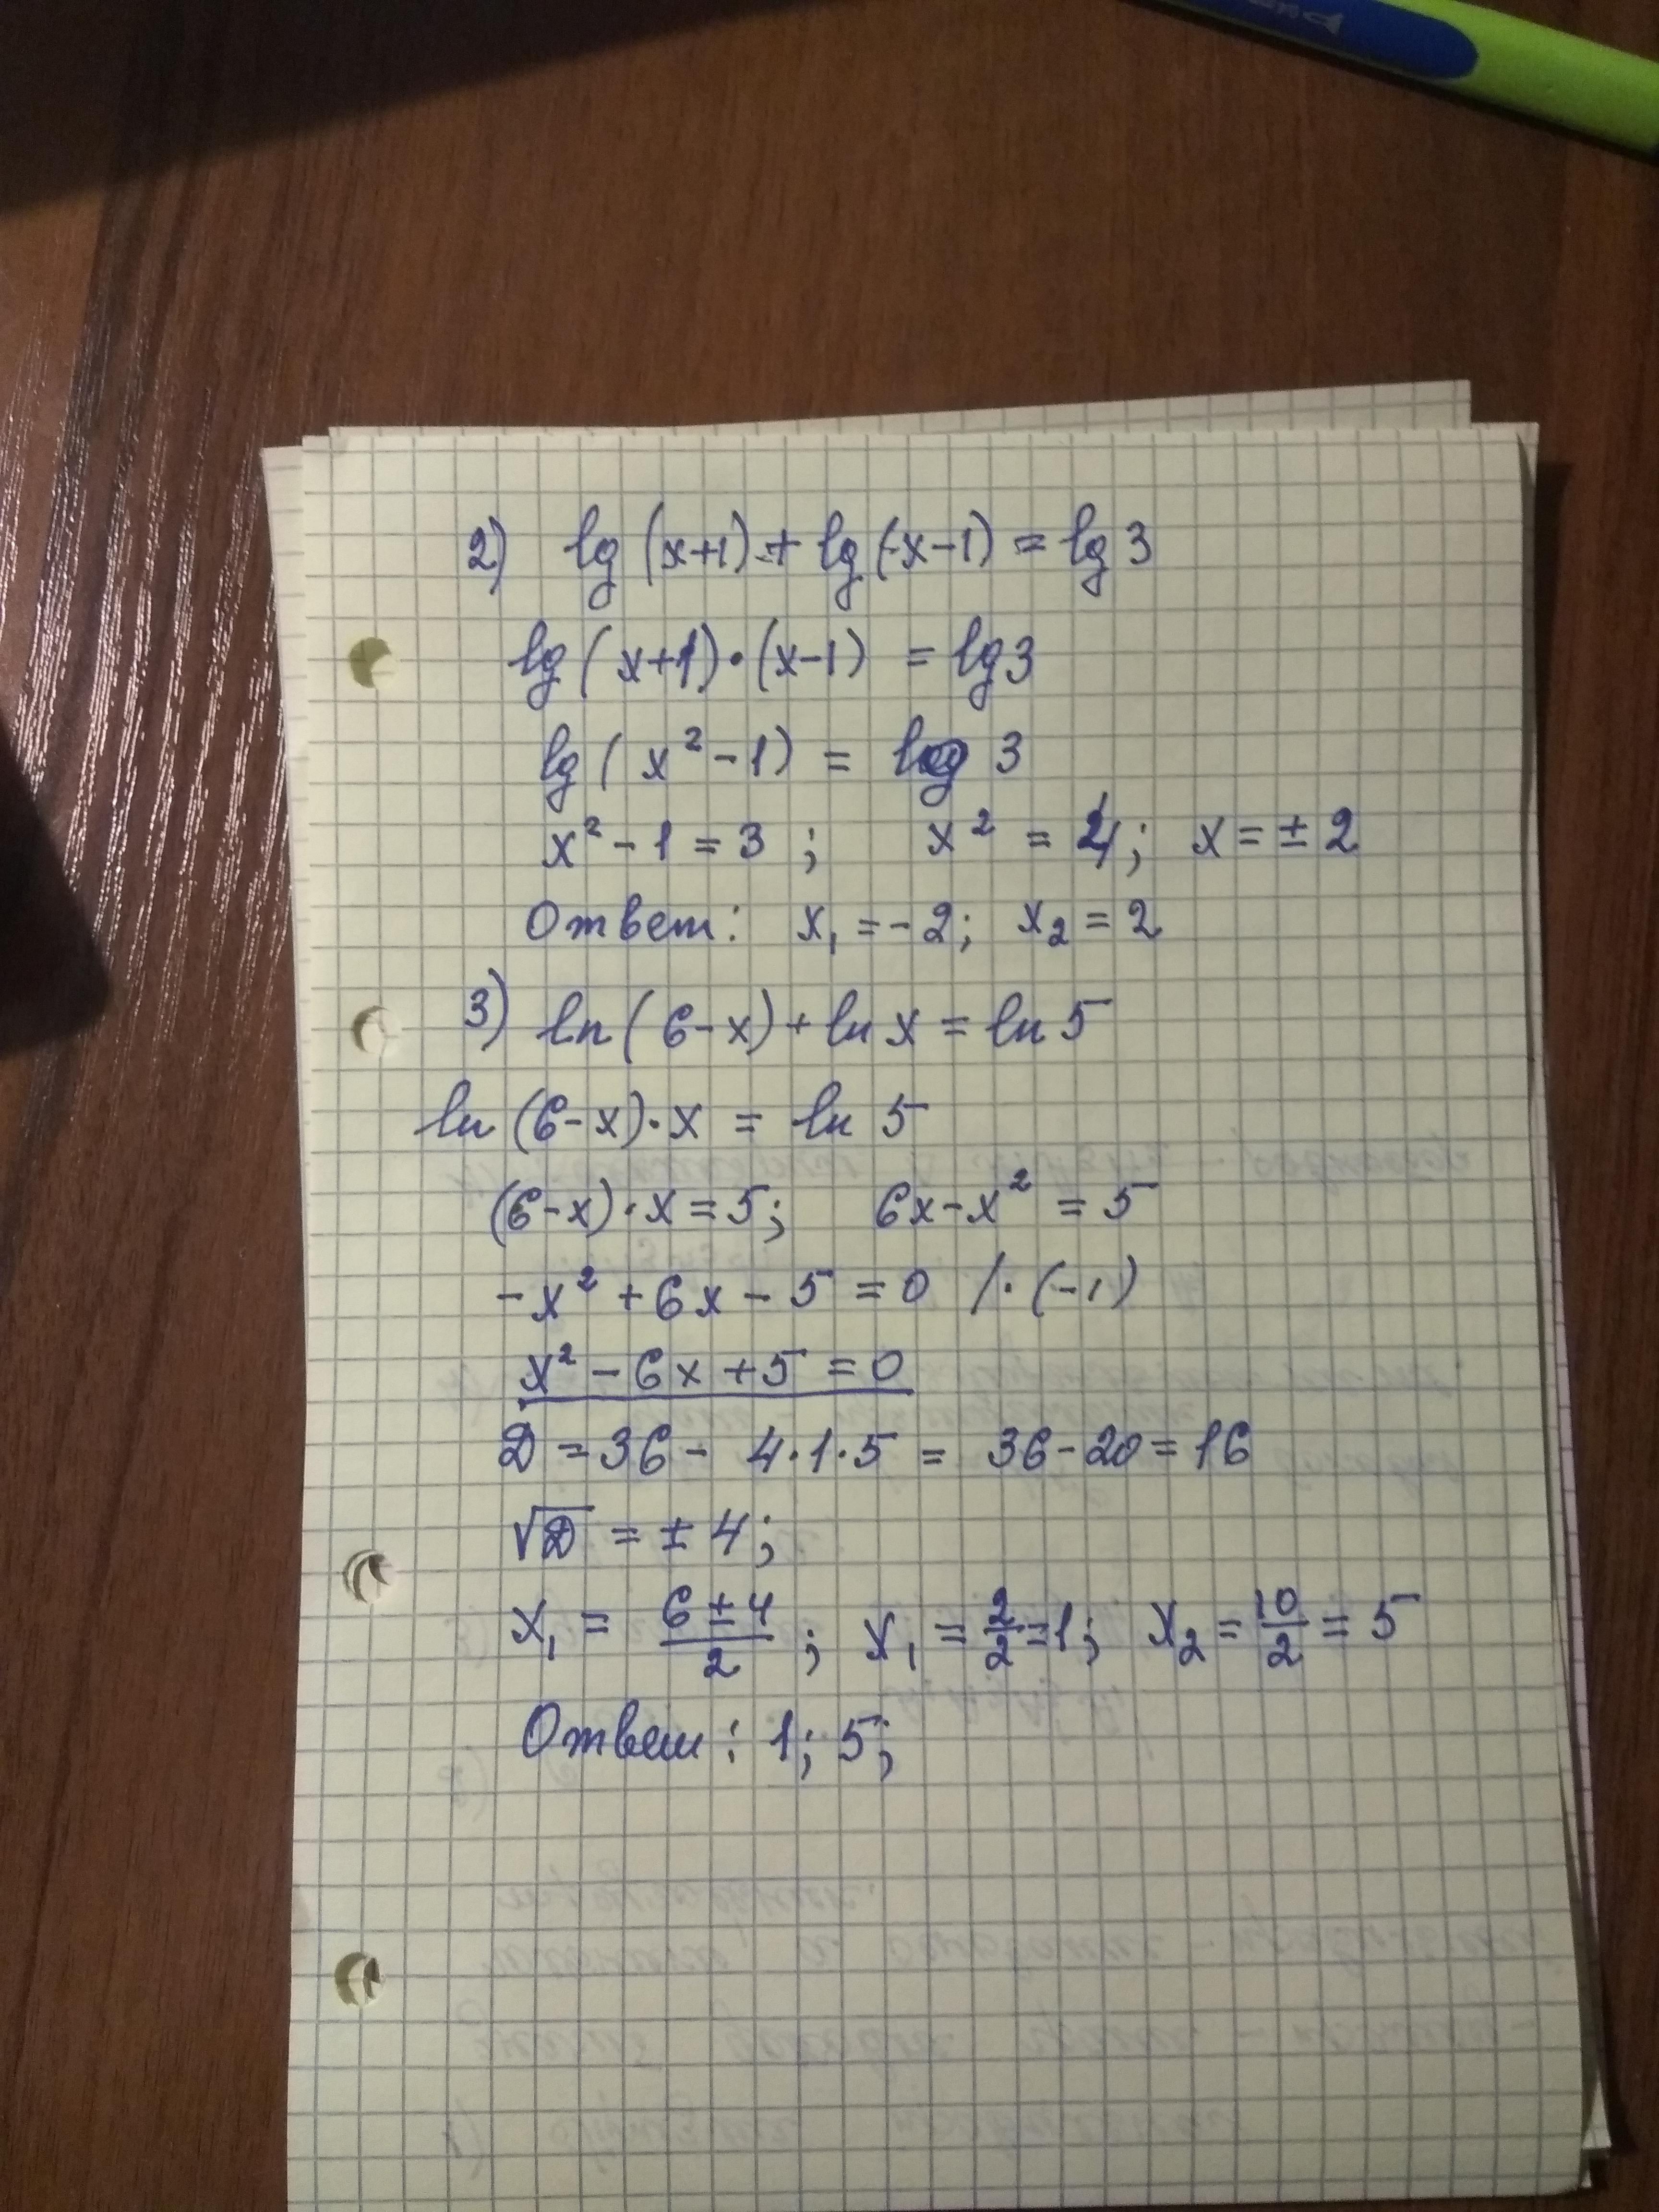 2) lg (x+1) + lg (x-1) = lg 3
lg (x+1)·(x-1) = lg 3
lg (x² - 1) = lg 3
x² - 1 = 3 ; x² = 4; x = ± 2
Ответ: x₁ = -2; x₂ = 2
3) ln (6-x) + ln x = ln 5
ln (6-x)·x = ln 5
(6-x)·x = 5; 6x-x² = 5
-x² + 6x - 5 = 0 /·(-1)
x² - 6x + 5 = 0
D = 36 - 4·1·5 = 36-20 = 16
√D = ± 4;
x₁ = (6 ± 4)/2 ; x₁ = 2/2 = 1; x₂ = 10/2 = 5
Ответ: 1; 5;